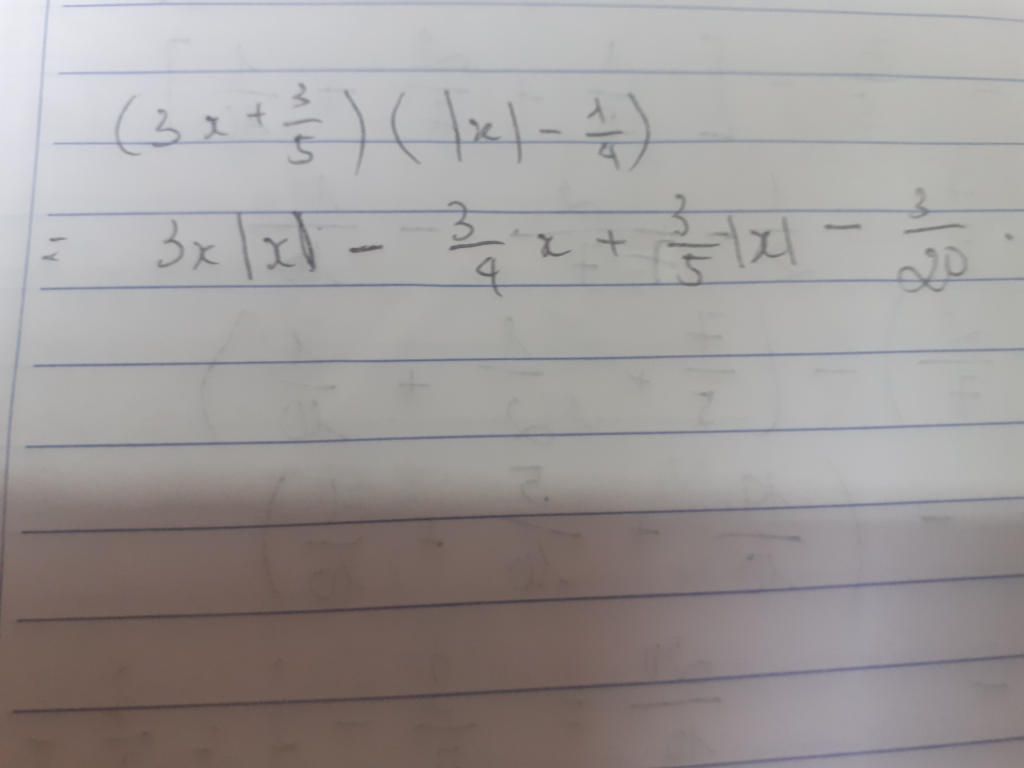 (3x + 3/5) (|x| - 1/4)
= 3x|x| - 3/4 x + 3/5 |x| - 3/20.